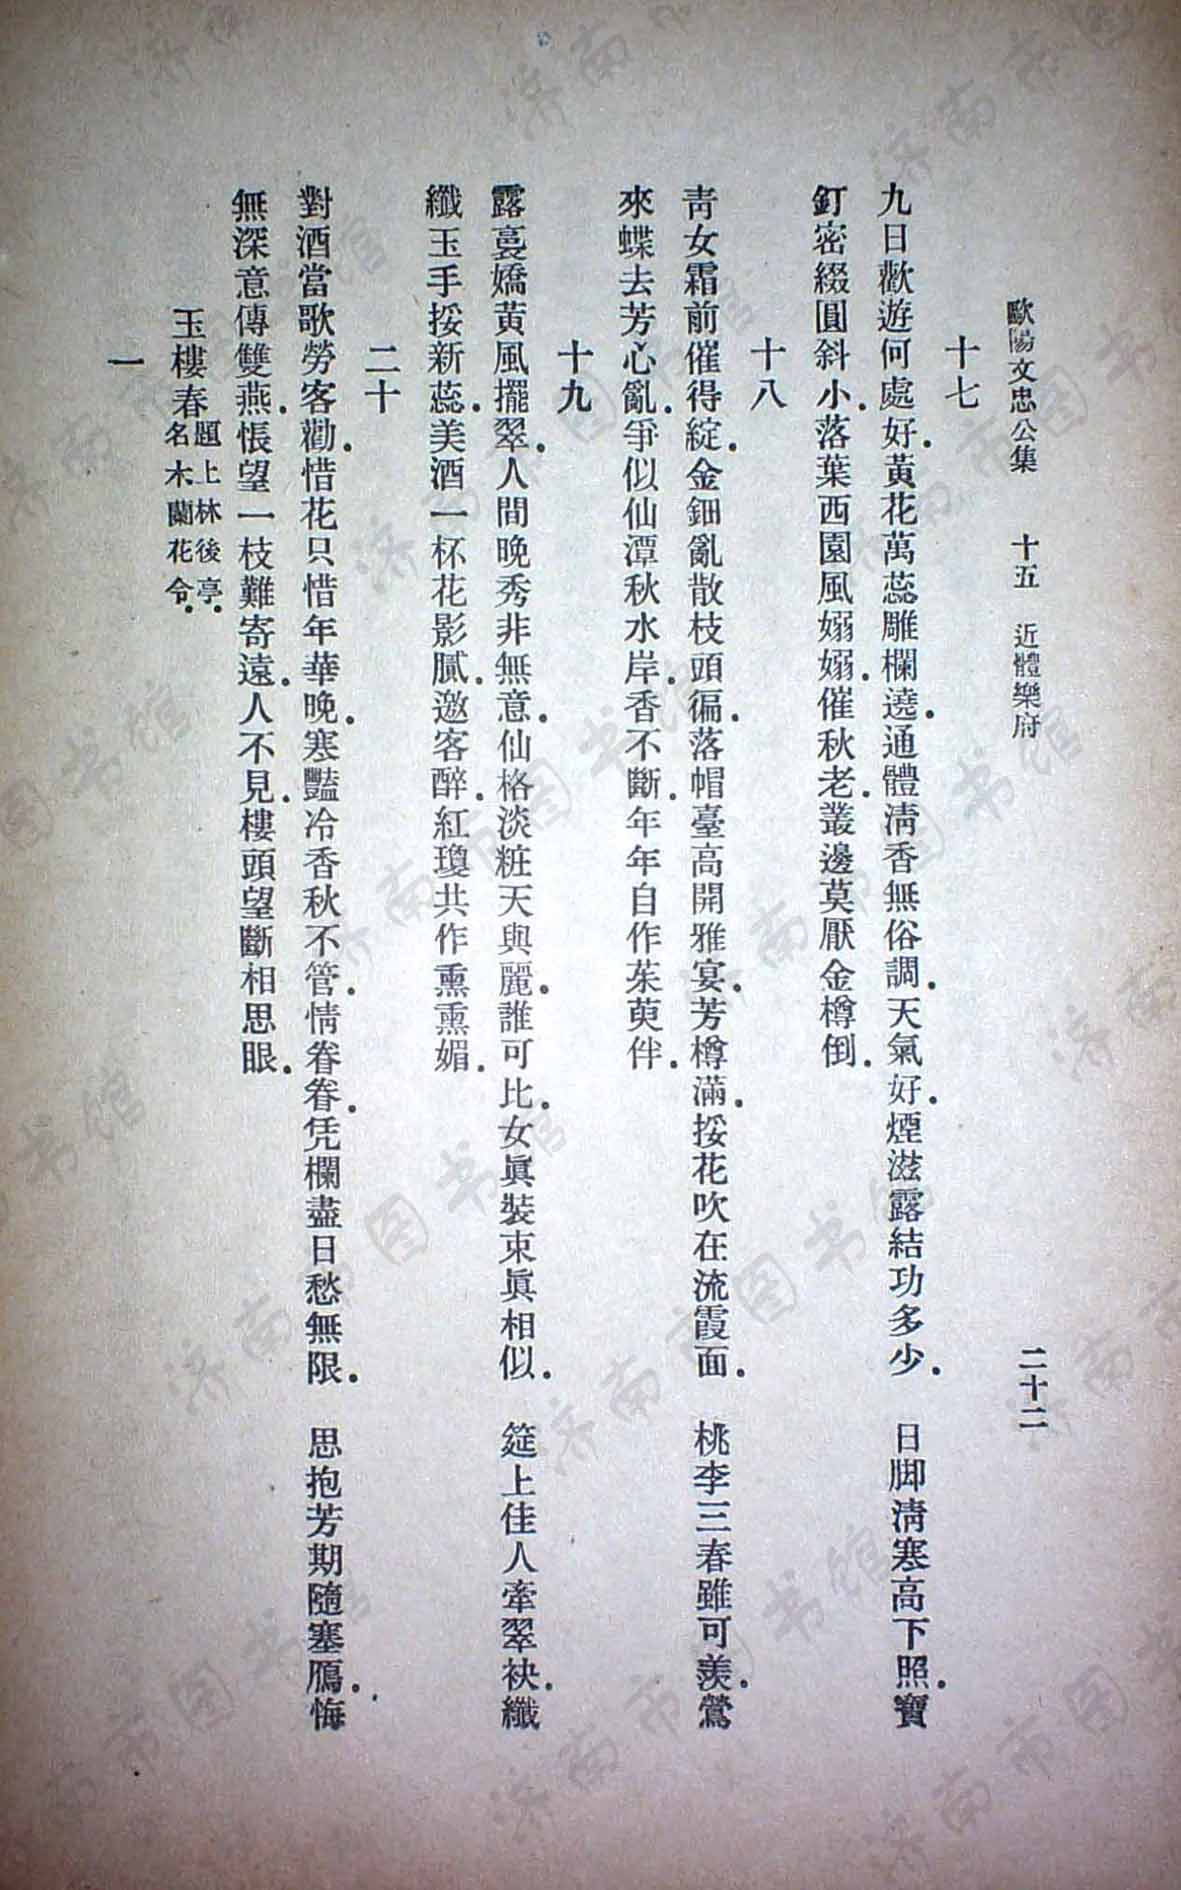 歐陽文忠公集　十五　近體樂府　二十二
十七
九日歡遊何處好．黃花萬蕊雕欄遶．通體清香無俗調．天氣好．煙滋露結功多少．　日脚清寒高下照．寶
釘密綴圓斜小．落葉西園風嫋嫋．催秋老．叢邊莫厭金樽倒．
十八
青女霜前催得綻．金鈿亂散枝頭徧．落帽臺高開雅宴．芳樽滿．挼花吹在流霞面．　桃李三春雖可羨．鶯
來蝶去芳心亂．爭似仙潭秋水岸．香不斷．年年自作茱萸伴．
十九
露裛嬌黃風擺翠．人間晚秀非無意．仙格淡粧天與麗．誰可比．女眞裝束眞相似．　筵上佳人牽翠袂．纖
纖玉手挼新蕊．美酒一杯花影膩．邀客醉．紅瓊共作熏熏媚．
二十
對酒當歌勞客勸．惜花只惜年華晚．寒豔冷香秋不管．情眷眷．凭欄盡日愁無限．　思抱芳期隨塞鴈．悔
無深意傳雙燕．悵望一枝難寄遠．人不見．樓頭望斷相思眼．
玉樓春題上林後亭．名木蘭花令．
一